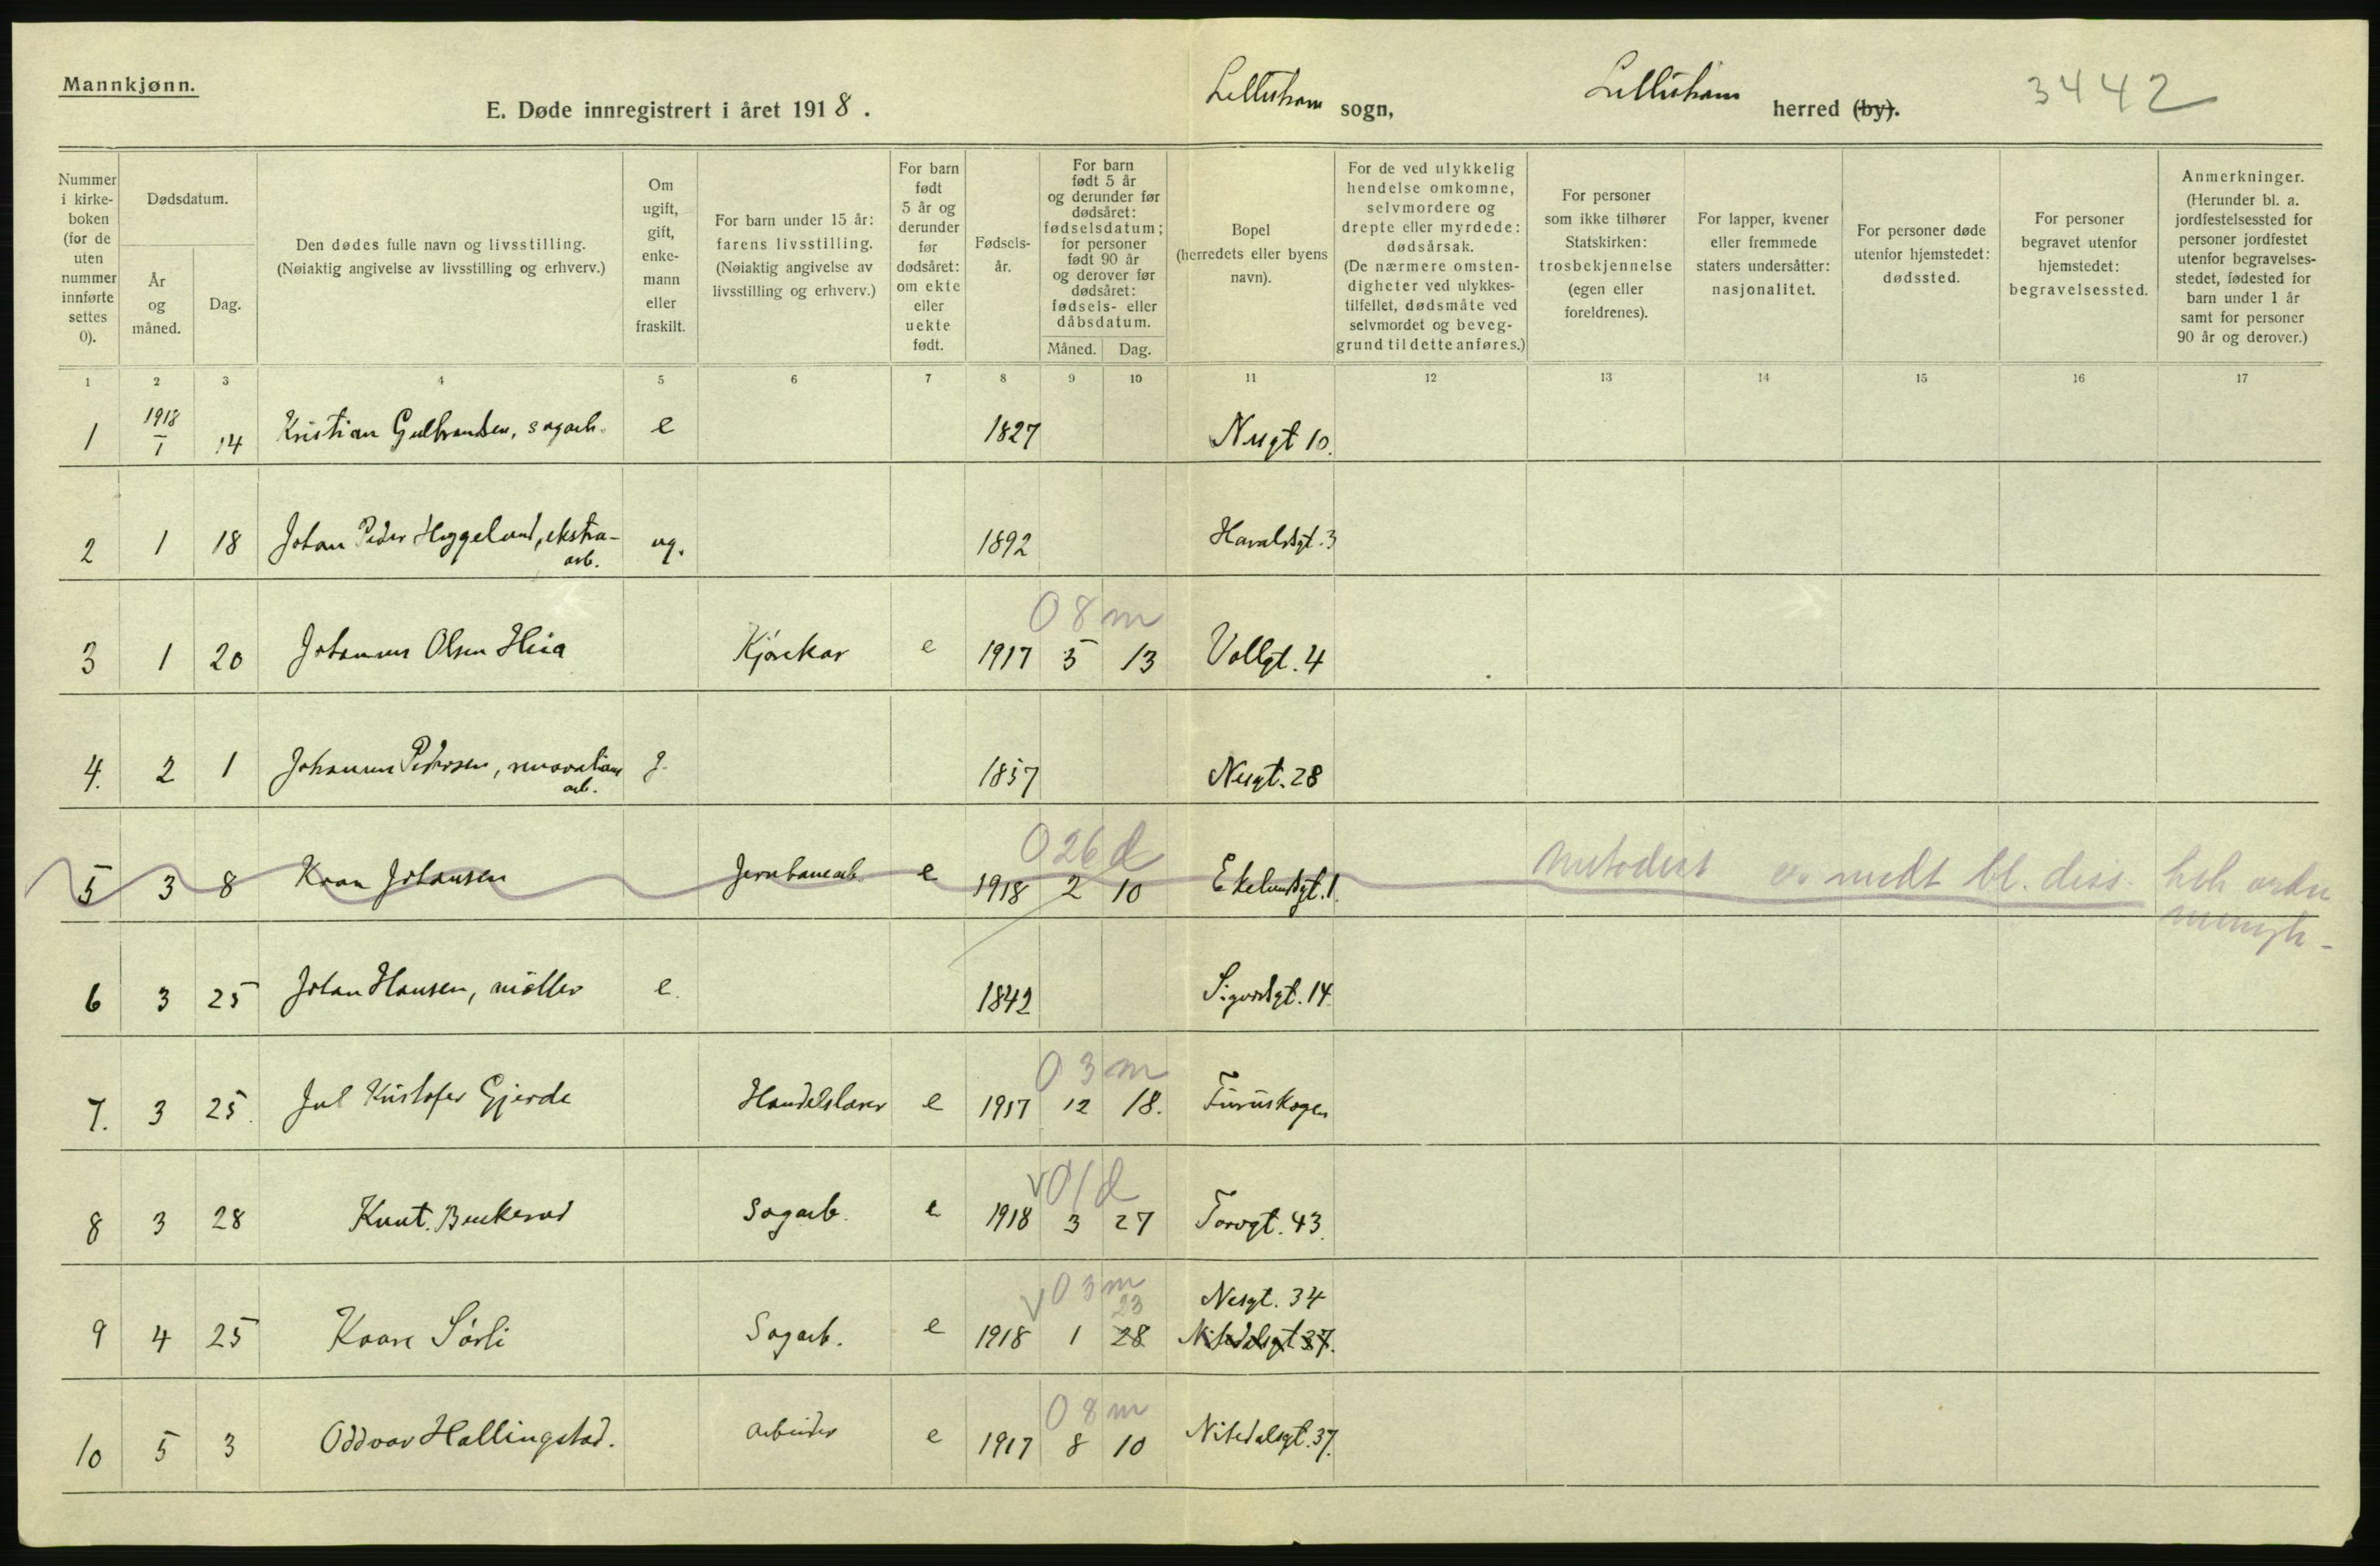 Mannkjønn.
E. Døde innregistrert i året 1918.
Lillestrøm sogn,
Lillestrøm herred (by).
3442
Nummer i kirke-boken (for de uten nummer innførte settes 0).
Dødsdatum.
År og måned.
Dag.
Den dødes fulle navn og livsstilling.
(Nøiaktig angivelse av livsstilling og erhverv.)
Om ugift, gift, enke-mann eller fraskilt.
For barn under 15 år: farens livsstilling. (Nøiaktig angivelse av livsstilling og erhverv.)
For barn født 5 år og derunder før dødsåret: om ekte eller uekte født.
Fødsels-år.
For barn født 5 år og derunder før dødsåret: fødselsdatum; for personer født 90 år og derover før dødsåret: fødsels- eller dåbsdatum.
Måned. Dag.
Bopel (herredets eller byens navn).
For de ved ulykkelig hendelse omkomne, selvmordere og drepte eller myrdede: dødsårsak. (De nærmere omsten-digheter ved ulykkes-tilfellet, dødsmåte ved selvmordet og beveg-grund til dette anføres.)
For personer som ikke tilhører Statskirken: trosbekjennelse (egen eller foreldrenes).
For lapper, kvener eller fremmede staters undersåtter: nasjonalitet.
For personer døde utenfor hjemstedet: dødssted.
For personer begravet utenfor hjemstedet: begravelsessted.
Anmerkninger. (Herunder bl. a. jordfestelsessted for personer jordfestet utenfor begravelses-stedet, fødested for barn under 1 år samt for personer 90 år og derover.)
1 2 3 4 5 6 7 8 9 10 11 12 13 14 15 16 17
1 1918 I 14 Kristian Gulbrandsen, sagarb. e 1827 Nesgt 10.
2 1 18 Johan Peder Heggelund, ekstra-arb. ug. 1892 Haraldsgt. 3
0 8 m
3 1 20 Johannes Olsen Hsia Kjørekar e 1917 5 13 Vollgt. 4
4. 2 1 Johannes Pedersen, arb. g. 1857 Nesgt. 28
0 26 d
5 3 8 Kaare Johansen Jernbanearb. e 1918 2 10 Ekelundsgt. 1. Metodist bl. diss.
6 3 25 Johan Hansen, møller e. 1842 Sigurdsgt. 14.
0 3 m
7. 3 25. Jul Kristofer Gjerde Handelslærer e 1917 12 18. Furuskogen
V 0 1 d
8 3 28 Knut. Buskerud Sagarb. e 1918 3 27 Torvgt. 43.
V 0 3 m
23 Nesgt. 34
9 4 25 Kaare Sörli Sagarb. e 1918 1 28 Nitedalsgt 37.
0 8 m
10 5 3 Oddvar Hallingstad. Arbeider e 1917 8 10 Nitedalsgt. 37.